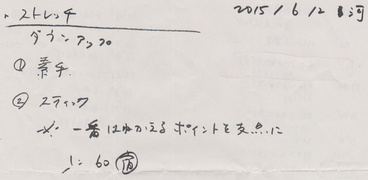 ・ストレッチ 2015/6/12 河
ダウンアップ
① 素手
② スティック
※ 一番はねかえるポイントを支点に
♩: 60